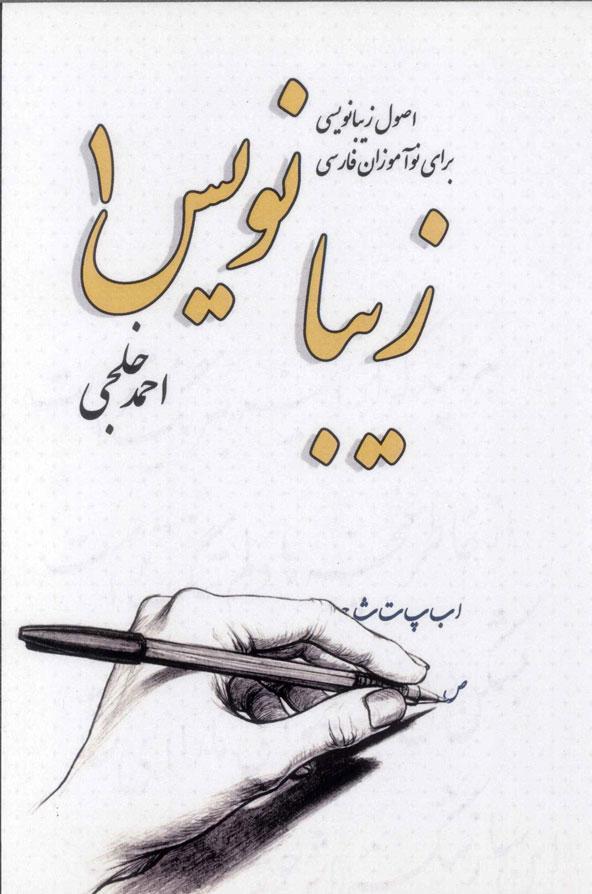 اصول زیبانویسی
برای نوآموزان فارسی
زیبا نویس ۱
احمد خلجی
ا ب پ ت ث
ص